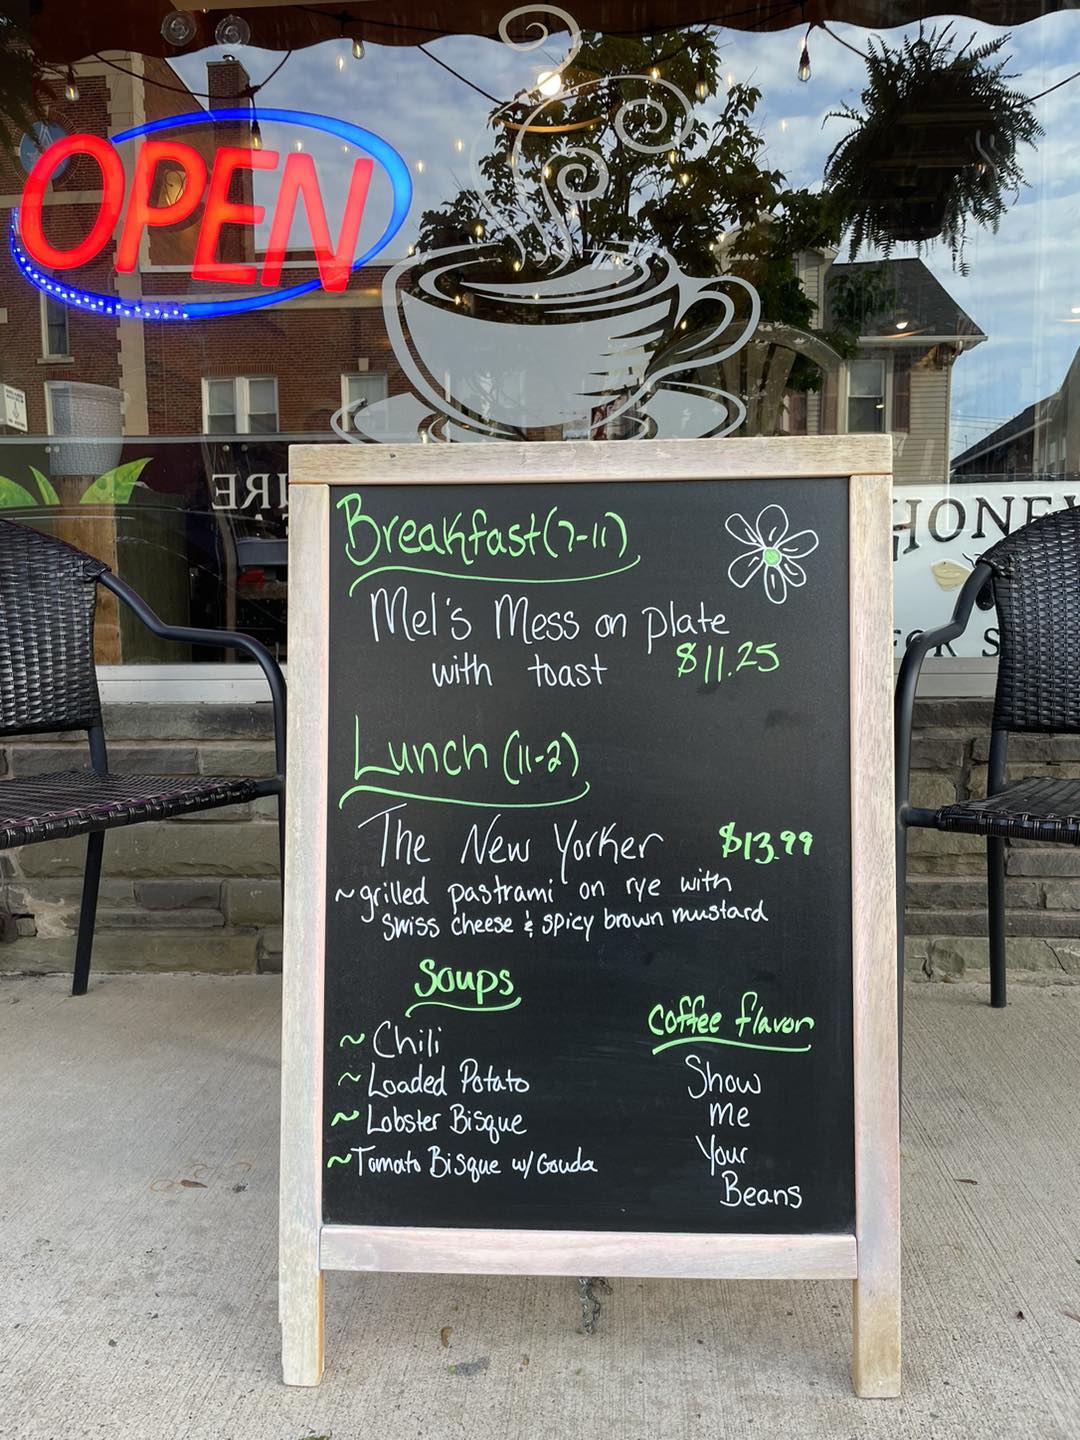 OPEN
Breakfast (7-11)
Mel's Mess on plate
with toast $11.25
Lunch (11-2)
The New Yorker $13.99
~grilled pastrami on rye with
Swiss cheese & spicy brown mustard
Soups
~ Chili
~ Loaded Potato
~ Lobster Bisque
~Tomato Bisque w/ Gouda
Coffee flavor
Show
Me
Your
Beans